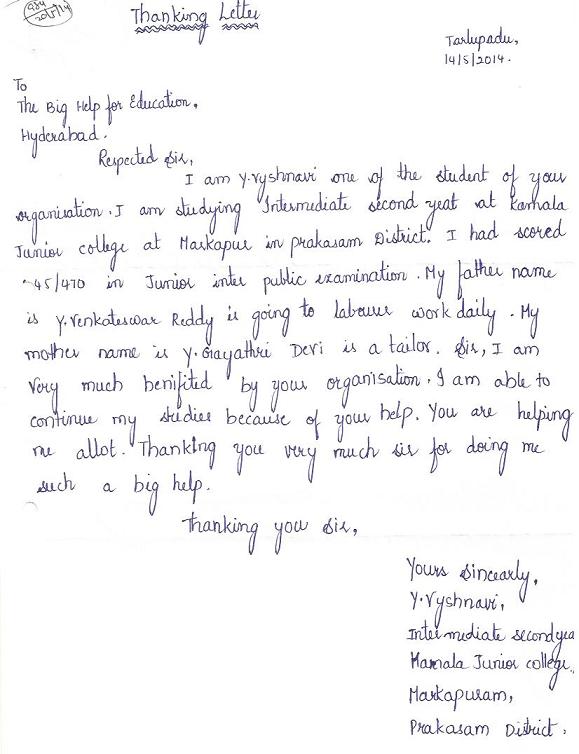 Thanking Letter
20/5/14
Tarlupadu,
14/5/2014.
To
The Big Help for Education,
Hyderabad.
Respected Sir,
I am Y.Vyshnavi one of the student of your
organisation. I am studying Intermediate second year at Kamala
Junior college at Markapur in prakasam District. I had scored
45/470 in Junior inter public examination. My father name
is Y.Venkateswar Reddy is going to labourer work daily. My
mother name is Y.Gayathri Devi is a tailor. Sir, I am
very much benifited by your organisation. I am able to
continue my studies because of your help. You are helping
me allot. Thanking you very much sir for doing me
such a big help.
Thanking you Sir,
Yours Sincearly,
Y.Vyshnavi,
Intermediate secondyea
Kamala Junior college,
Markapuram,
Prakasam District,